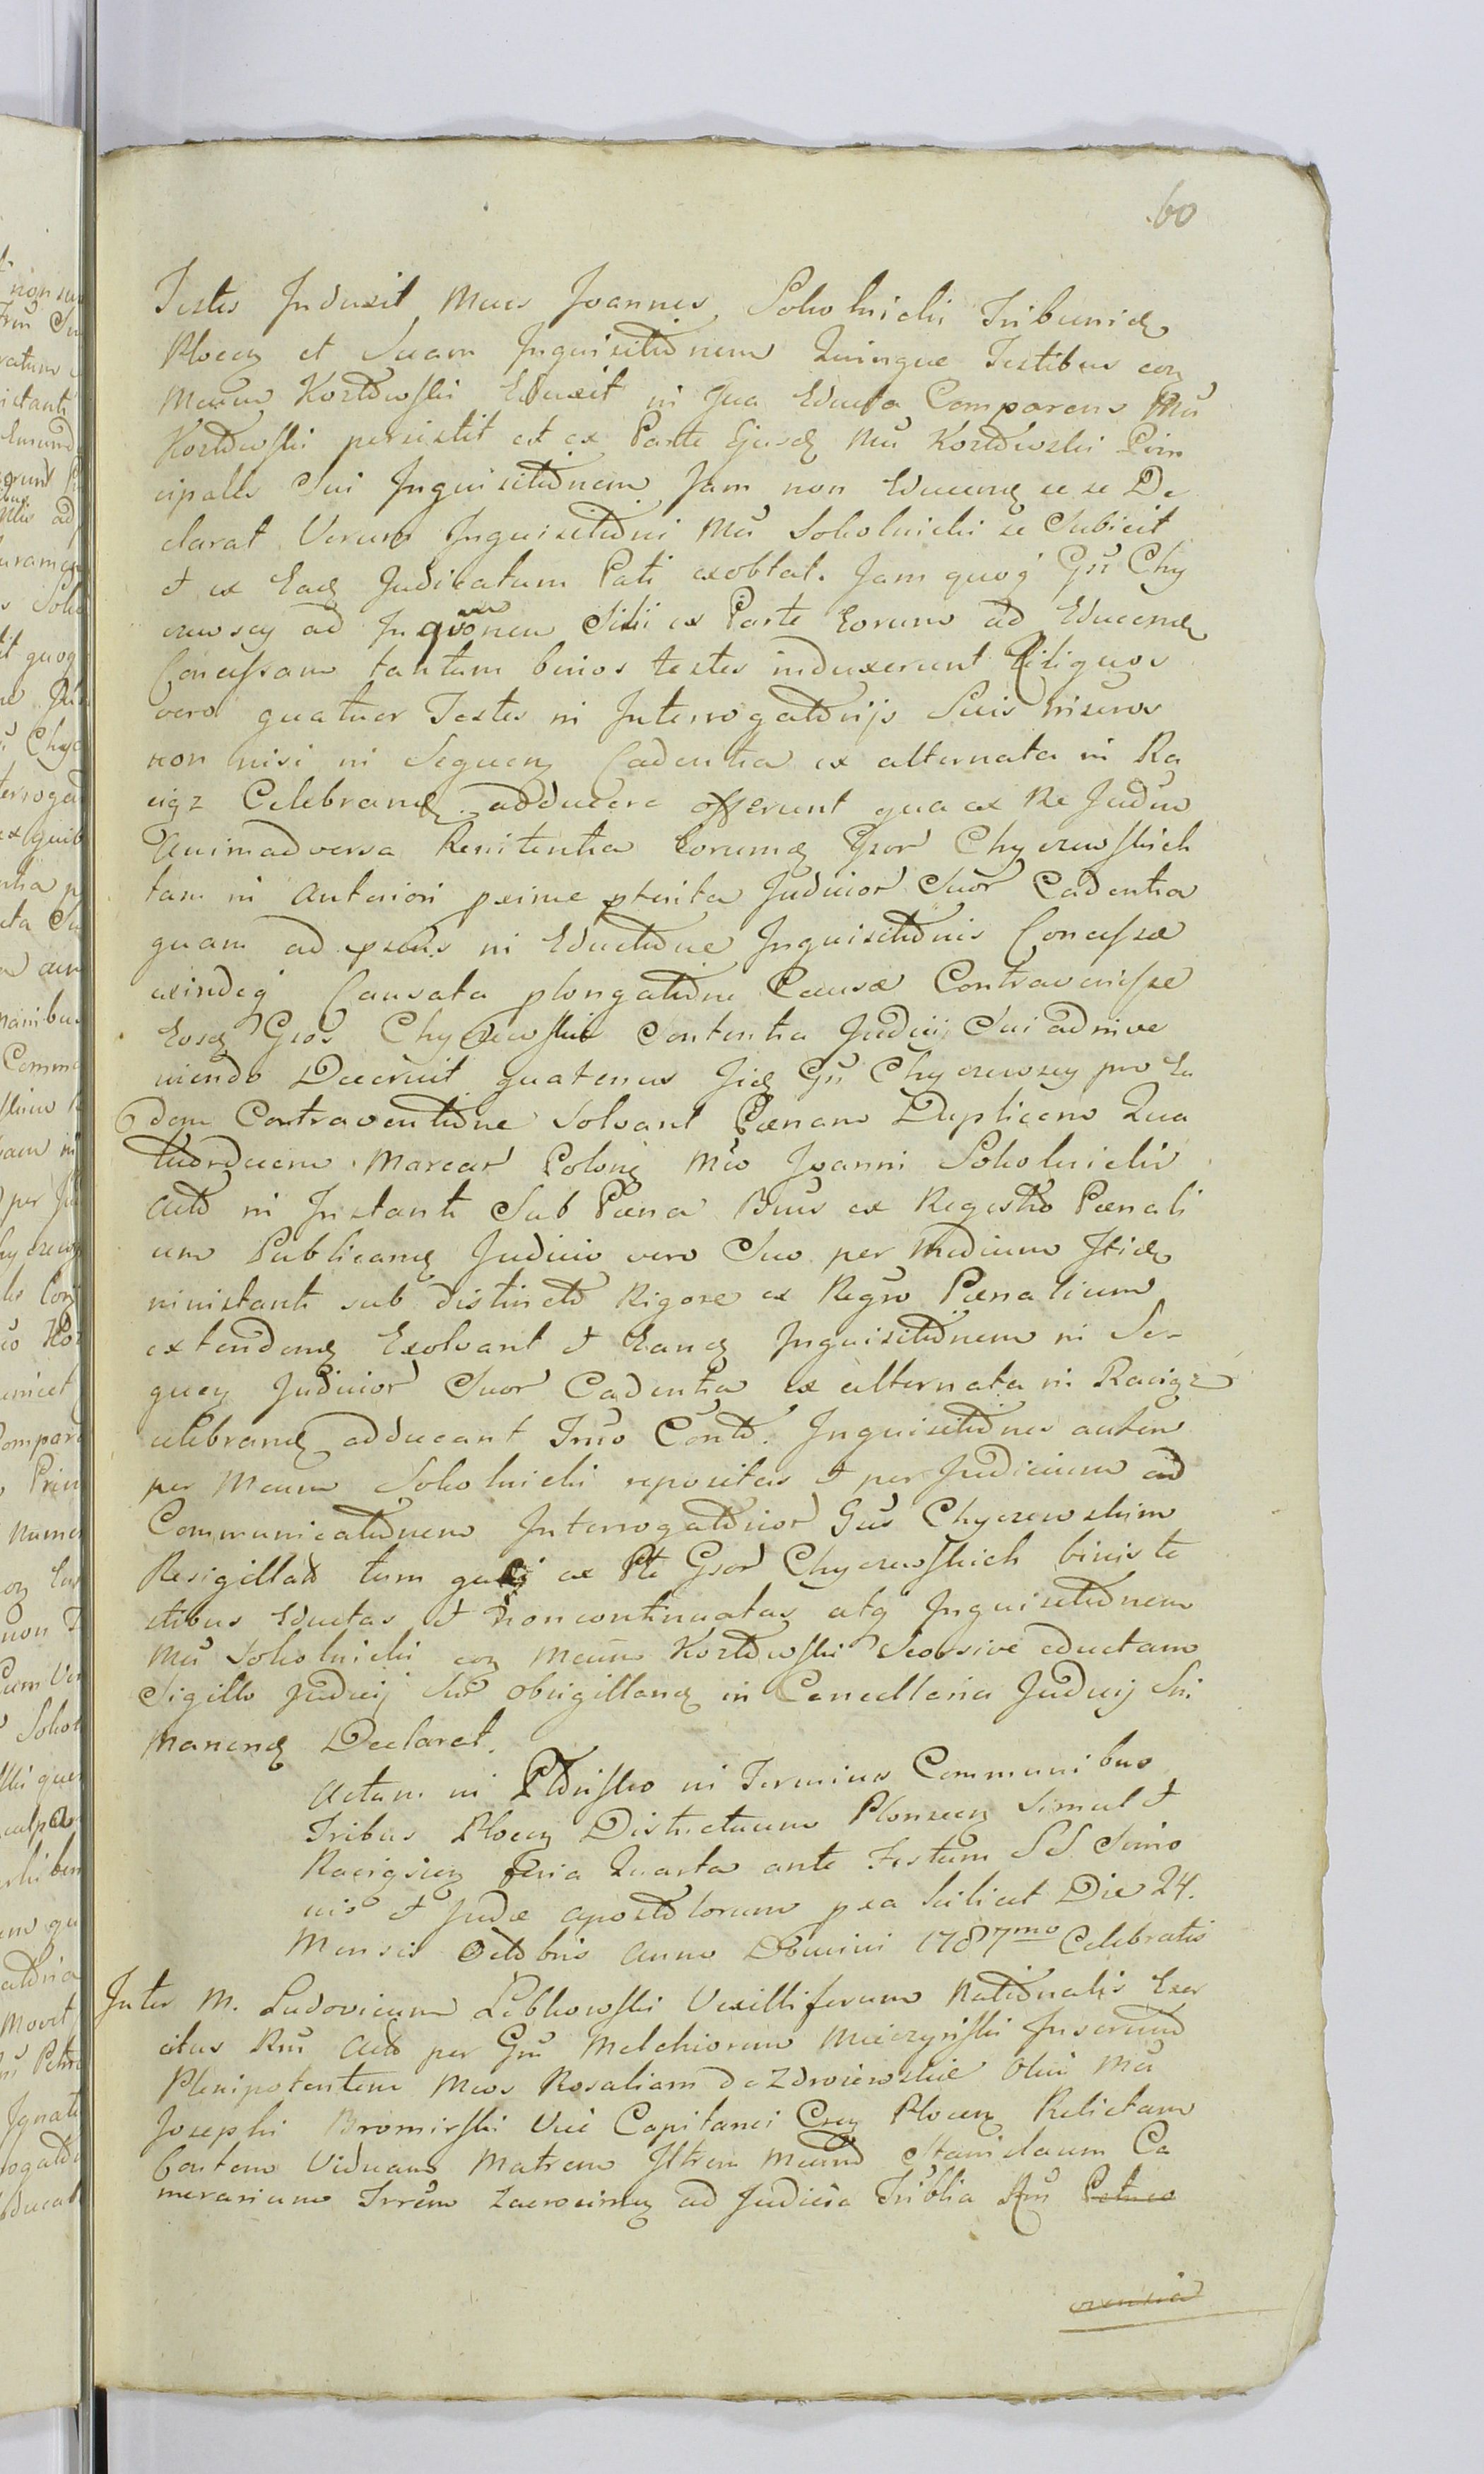 60
Testes Induxit Mcus Joannes Sokolnicki Tribunid
Plocen et Suam Inquisitionem Quinque Testibus con
Mcum Kozłowski Eduxit in sua Educta Comparens Mci
Kozłowski persistit et ex Parte Ejusd Mci Kozłowski Prin
cipalis Sui Inquisitionem Jam non Educend se se De
clarat Verum Inquisitioni Mci Sokolnicki se Subicit
et ex Ead Judicatum Pati exoblat. Jam quoq Gsi Chy
czewscy ad Inqvonem Sibi ex Parte Eorum ad Educend
Concessam tantum binos testes induxerunt Reliquos
vero quatuor Testes in Interrogatorijs Suis insertos
non nisi in Sequen Cadentia ex alternata in Ra
ciąz Celebrand adducere offerunt qua ex Re Judm
Animadversa Renitentia Eorumd Gsor Chyczewskich
tam in anteriori pxime pterita Judicior Suor Cadentia
quam ad psens in Eductione Inquisitionis Concessæ
exindeq Causata plongatione Causæ Contravenisse
Eosd Gsos Chyczewskie Sententia Judicii Sui adinve
niendo Decernit quatenus Jid Gsi Chyczewscy pro Ea
dem Contraventione Solvant Pænam Duplicem Qua
tuordecem Marcar Polon Mco Joanni Sokolnicki
Acto in Instanti Sub Pæna Bnis ex Registro Pænali
um Publicand Judicio vero Suo per Medium Itid
ininstanti sub distincto Rigore ex Regro Pænalium
extendend Exolvant et Eand Inquisitionem in Se-
quen Judicior Suor Cadentia ex alternata in Raciąz
celebrand adducant Trno Conto. Inquisitiones autem
per Mcum Sokolnicki repositas et per Judicium ad
Communicationem Interrogatorior Gsis Chyczewskim
Resigillato tum quoq ex Pte Gsor Chyczewskich binis te
stibus Eductas et noncontinuatas atq Inquisitionem
Mci Sokolnicki con Mcum Kozłowski Seorsive eductam
Sigillo Judicij Sui obsigilland in Cancellaria Judicij Sui
Manend Declarat.
Actum in Płońsko in Terminis Communibus
Tribus Plocen Districtuum Plonscen Simul et
Raciąscien Feria Quarta ante Festum SS. Simo
nis et Judæ Apostolorum pxa scilicet Die 24.
Mensis Octobris Anno Domini 1787mo Celebratis
Inter M. Ludovicum Lebkowski Vexilliferum Nationalis Exer
citus Rni Acto per Gsm Melchiorem Mieczyński Inserend
Plenipotentem Mcos Rosaliam de Zdroiewskie Olim Mci
Josephi Bromirski Vice Capitanei Cren Plocen Relictam
Contem Viduam Matrem Itrem Mcumd Stanislaum Ca
merarium Trrem Zacrocimen ad Judicia Triblia Rni Petrico
vensia